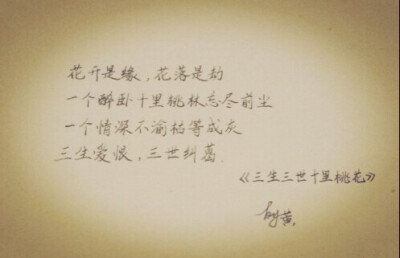 花开是缘,花落是劫
一个醉卧十里桃林忘尽前尘
一个情深不渝枯等成灰
三生爱恨,三世纠葛.
《三生三世十里桃花》